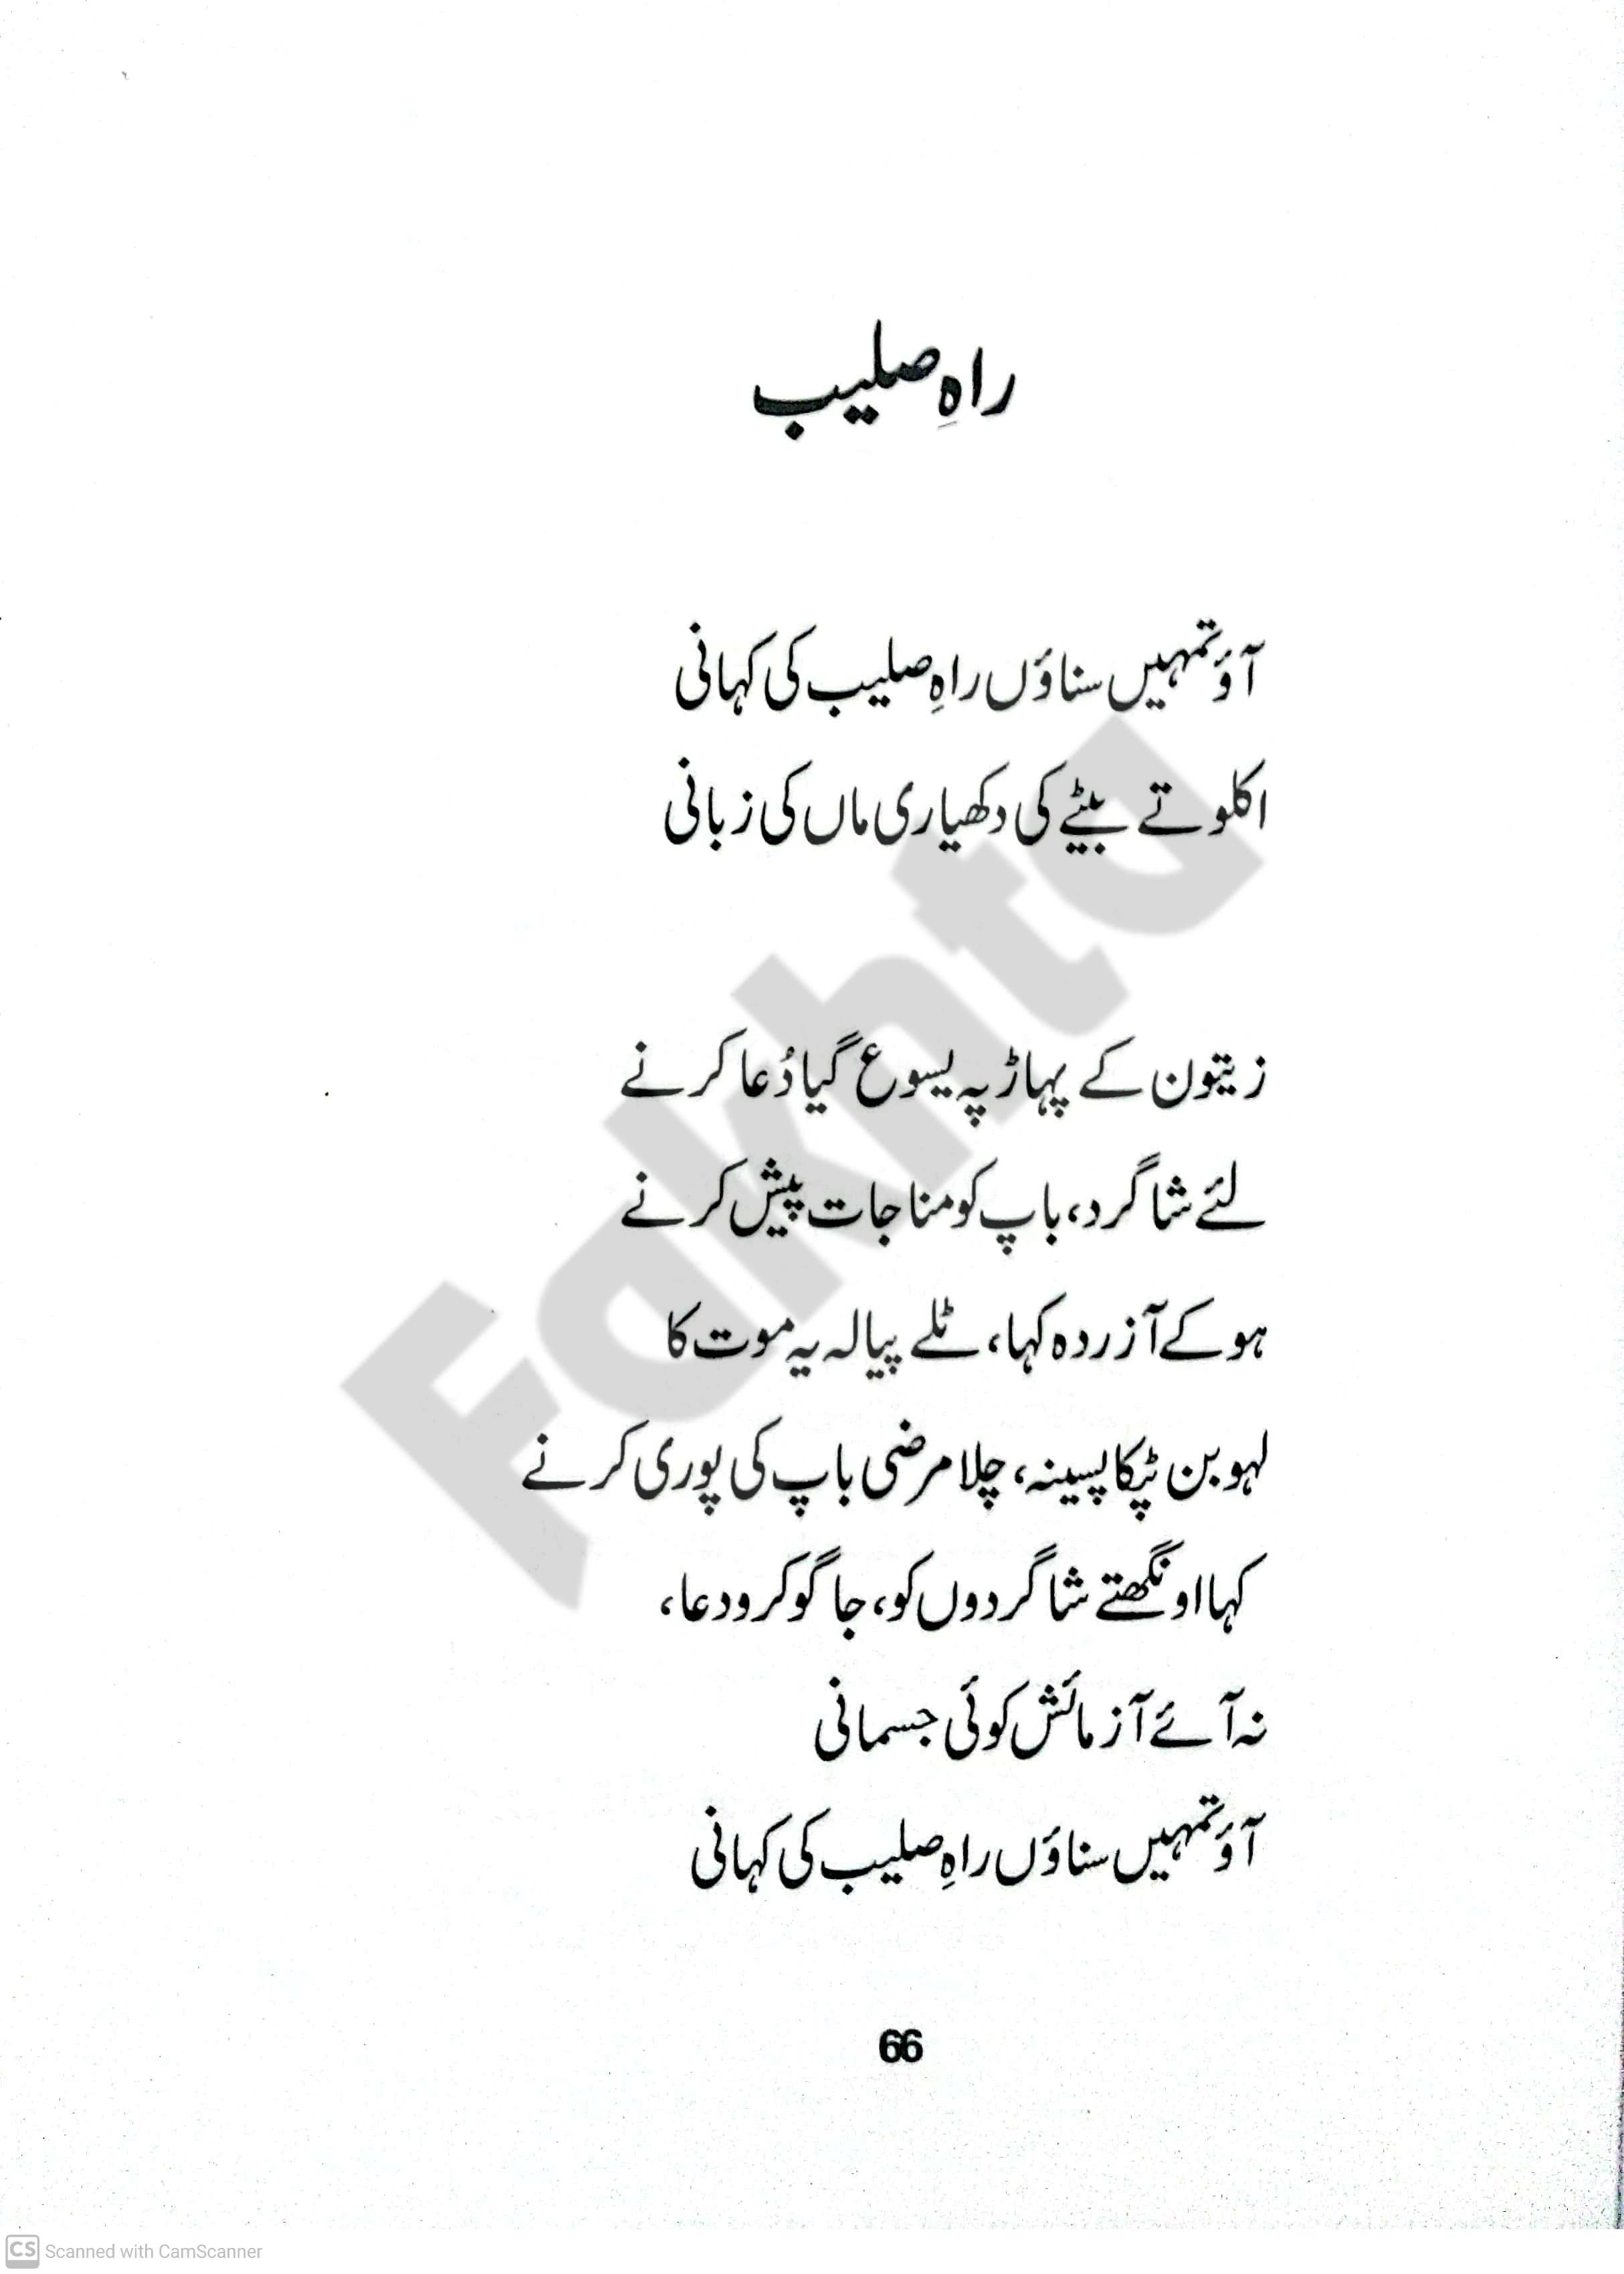 راہِ صلیب
آؤ تمہیں سناؤں راہِ صلیب کی کہانی
اکلوتے بیٹے کی دکھیاری ماں کی زبانی
زیتون کے پہاڑ پہ یسوع گیا دُعا کرنے
لئے شاگرد، باپ کو مناجات پیش کرنے
ہو کے آزردہ کہا، ٹلے پیالہ یہ موت کا
لہو بن ٹپکا پسینہ، چلا مرضی باپ کی پوری کرنے
کہا اونگھتے شاگردوں کو، جاگو کرو دعا،
نہ آئے آزمائش کوئی جسمانی
آؤ تمہیں سناؤں راہِ صلیب کی کہانی
66
Fakhta
CS Scanned with CamScanner